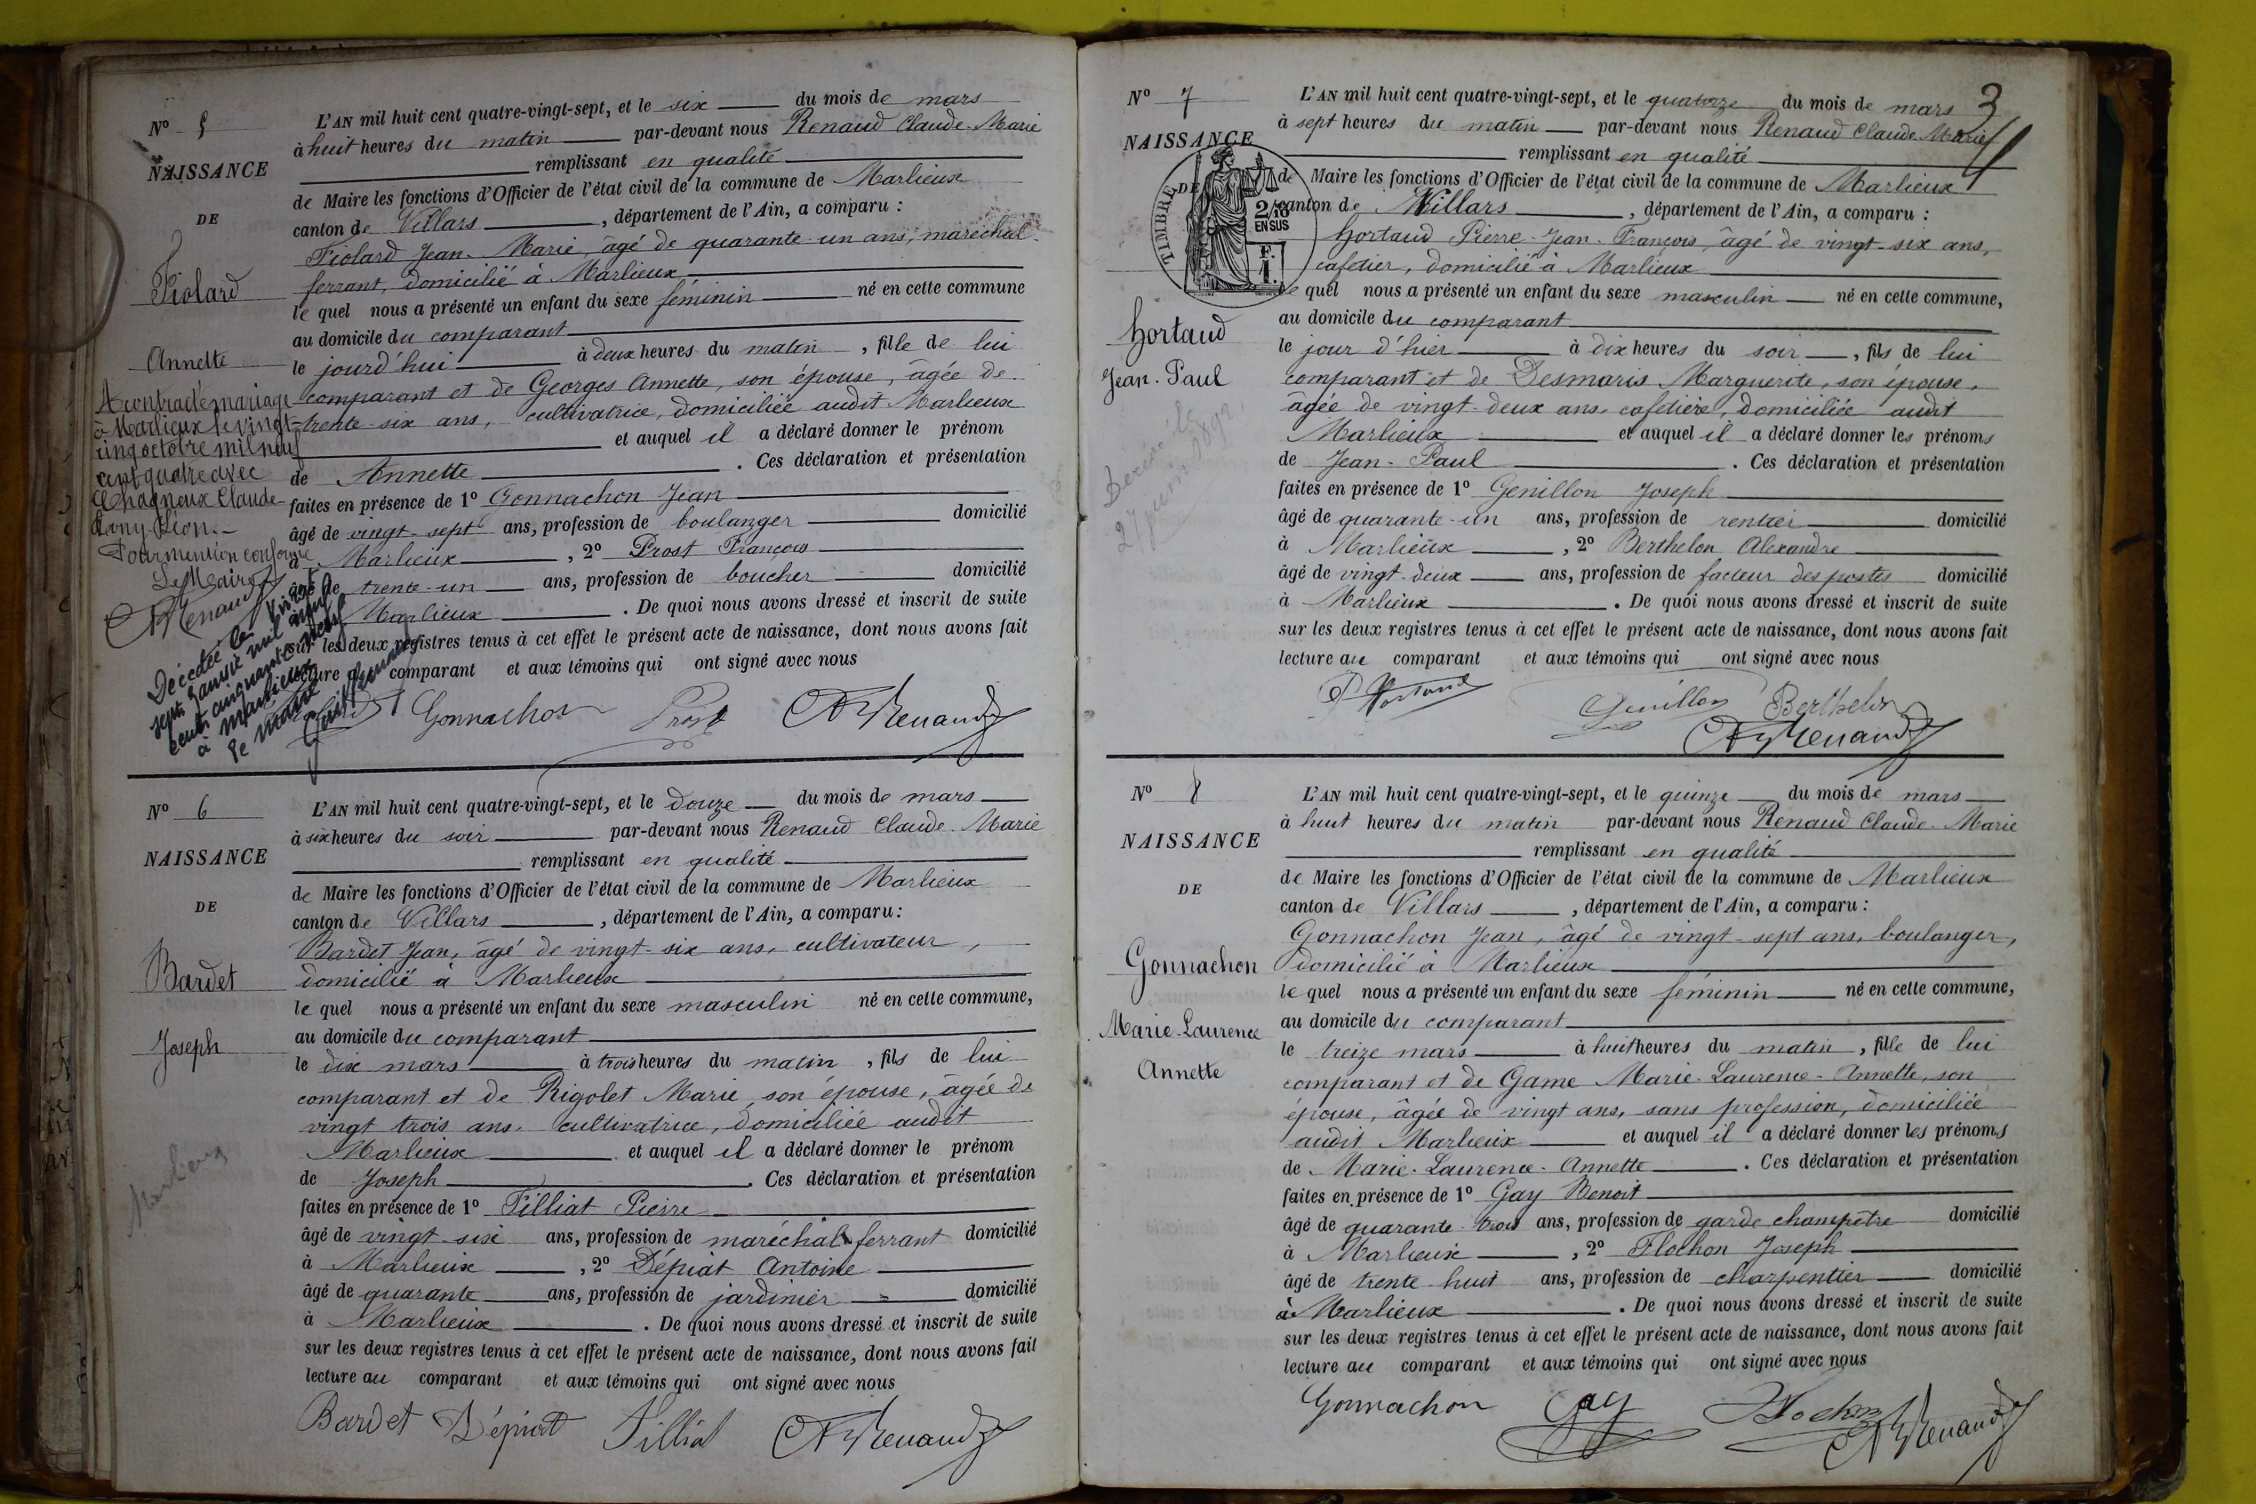 N° 5
NAISSANCE
DE
Fiolard
Annette
A contracté mariage
à Marlieux le vingt-
cinq octobre mil neuf
cent quatre avec
Chagneux Claude-
Léon.-
Pour mention conforme
Le Maire
CMRenaud
Décédée le vingt
sept janvier mil neuf
cent cinquante
à Marlieux
le Maire
L'AN mil huit cent quatre-vingt-sept, et le six du mois de mars
à huit heures du matin par-devant nous Renaud Claude-Marie
remplissant en qualité
de Maire les fonctions d'Officier de l'état civil de la commune de Marlieux
canton de Villars, département de l'Ain, a comparu :
Fiolard Jean-Marie, âgé de quarante-un ans, maréchal-
ferrant, domicilié à Marlieux
le quel nous a présenté un enfant du sexe féminin né en cette commune
au domicile du comparant
le jourd'hui à deux heures du matin, fille de lui
comparant et de Georges Annette, son épouse, âgée de
trente-six ans, cultivatrice, domiciliée audit Marlieux
et auquel il a déclaré donner le prénom
de Annette. Ces déclaration et présentation
faites en présence de 1° Gonnachon Jean
âgé de vingt-sept ans, profession de boulanger domicilié
à Marlieux, 2° Prost François
âgé de trente-un ans, profession de boucher domicilié
Marlieux. De quoi nous avons dressé et inscrit de suite
sur les deux registres tenus à cet effet le présent acte de naissance, dont nous avons fait
lecture au comparant et aux témoins qui ont signé avec nous
Gonnachon Prost CMRenaud
N° 6
NAISSANCE
DE
Bardet
Joseph
Marlieux
L'AN mil huit cent quatre-vingt-sept, et le douze du mois de mars
à six heures du soir par-devant nous Renaud Claude-Marie
remplissant en qualité
de Maire les fonctions d'Officier de l'état civil de la commune de Marlieux
canton de Villars, département de l'Ain, a comparu :
Bardet Jean, âgé de vingt-six ans, cultivateur,
domicilié à Marlieux
le quel nous a présenté un enfant du sexe masculin né en cette commune,
au domicile du comparant
le dix mars à trois heures du matin, fils de lui
comparant et de Rigolet Marie, son épouse, âgée de
vingt trois ans, cultivatrice, domiciliée audit
Marlieux et auquel il a déclaré donner le prénom
de Joseph. Ces déclaration et présentation
faites en présence de 1° Filliat Pierre
âgé de vingt-six ans, profession de maréchal ferrant domicilié
à Marlieux, 2° Dépiat Antoine
âgé de quarante ans, profession de jardinier domicilié
à Marlieux. De quoi nous avons dressé et inscrit de suite
sur les deux registres tenus à cet effet le présent acte de naissance, dont nous avons fait
lecture au comparant et aux témoins qui ont signé avec nous
Bardet Dépiat Filliat CMRenaud
3
N° 7
NAISSANCE
DE
TIMBRE
2/10
EN SUS
F.
1.
Hortaud
Jean-Paul
Décédé le
27 juin
L'AN mil huit cent quatre-vingt-sept, et le quatorze du mois de mars
à sept heures du matin par-devant nous Renaud Claude-Marie
remplissant en qualité
de Maire les fonctions d'Officier de l'état civil de la commune de Marlieux
canton de Villars, département de l'Ain, a comparu :
Hortaud Pierre-Jean-François, âgé de vingt-six ans,
cafetier, domicilié à Marlieux
le quel nous a présenté un enfant du sexe masculin né en cette commune,
au domicile du comparant
le jour d'hier à dix heures du soir, fils de lui
comparant et de Desmaris Marguerite, son épouse,
âgée de vingt-deux ans, cafetière, domiciliée audit
Marlieux et auquel il a déclaré donner les prénoms
de Jean-Paul. Ces déclaration et présentation
faites en présence de 1° Genillon Joseph
âgé de quarante-un ans, profession de rentier domicilié
à Marlieux, 2° Berthelon Alexandre
âgé de vingt-deux ans, profession de facteur des postes domicilié
à Marlieux. De quoi nous avons dressé et inscrit de suite
sur les deux registres tenus à cet effet le présent acte de naissance, dont nous avons fait
lecture au comparant et aux témoins qui ont signé avec nous
P Hortaud Genillon Berthelon
CMRenaud
N° 8
NAISSANCE
DE
Gonnachon
Marie-Laurence
Annette
L'AN mil huit cent quatre-vingt-sept, et le quinze du mois de mars
à huit heures du matin par-devant nous Renaud Claude-Marie
remplissant en qualité
de Maire les fonctions d'Officier de l'état civil de la commune de Marlieux
canton de Villars, département de l'Ain, a comparu :
Gonnachon Jean, âgé de vingt-sept ans, boulanger,
domicilié à Marlieux
le quel nous a présenté un enfant du sexe féminin né en cette commune,
au domicile du comparant
le treize mars à huit heures du matin, fille de lui
comparant et de Game Marie-Laurence-Annette, son
épouse, âgée de vingt ans, sans profession, domiciliée
audit Marlieux et auquel il a déclaré donner les prénoms
de Marie-Laurence-Annette. Ces déclaration et présentation
faites en présence de 1° Gay Benoit
âgé de quarante-trois ans, profession de garde champêtre domicilié
à Marlieux, 2° Flochon Joseph
âgé de trente-huit ans, profession de charpentier domicilié
à Marlieux. De quoi nous avons dressé et inscrit de suite
sur les deux registres tenus à cet effet le présent acte de naissance, dont nous avons fait
lecture au comparant et aux témoins qui ont signé avec nous
Gonnachon Gay Flochon CMRenaud